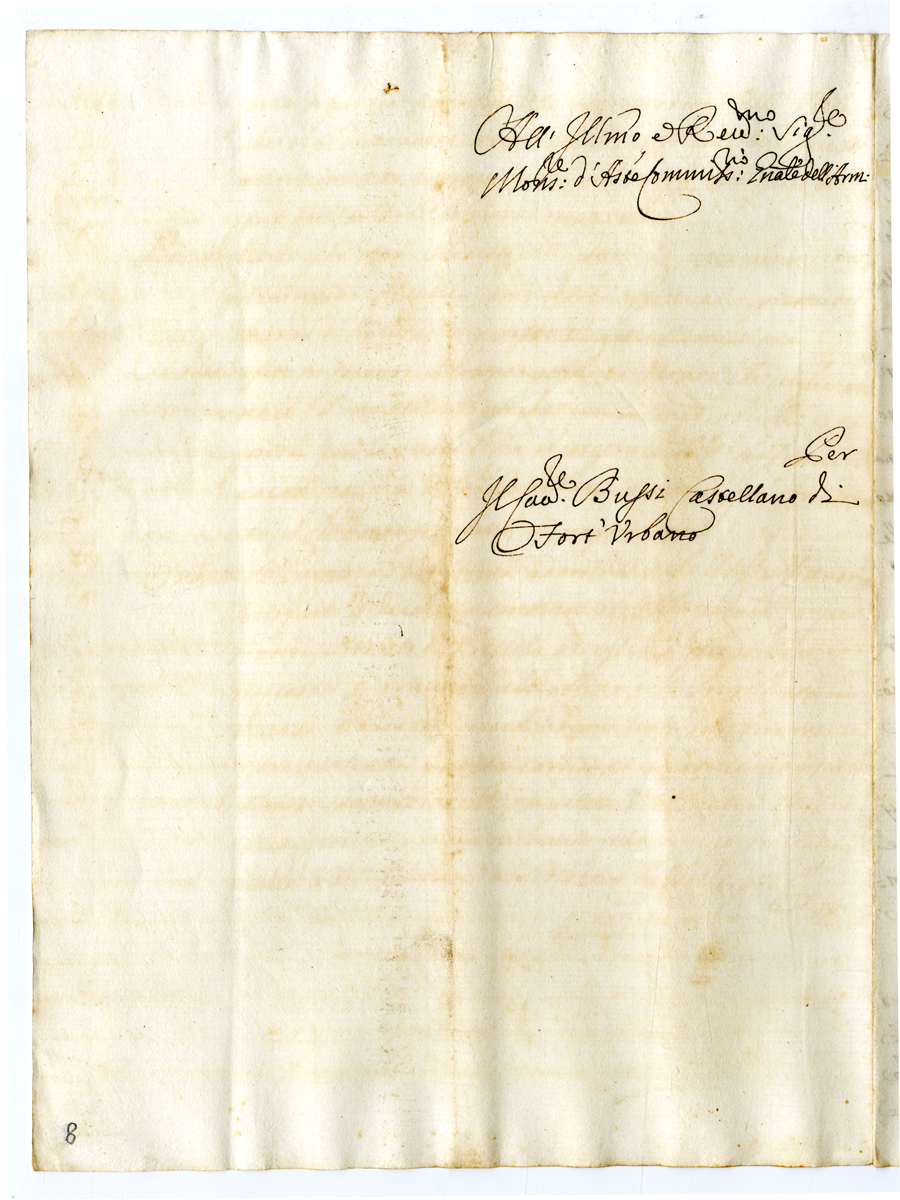 All' Jllmo e Reu.mo: Sig.re
Mons.re: d'Aste Commiss.rio: Gnãle dell'Arm:
Per
Jl Cau.re: Bussi Castellano di
Fort' Vrbano
8